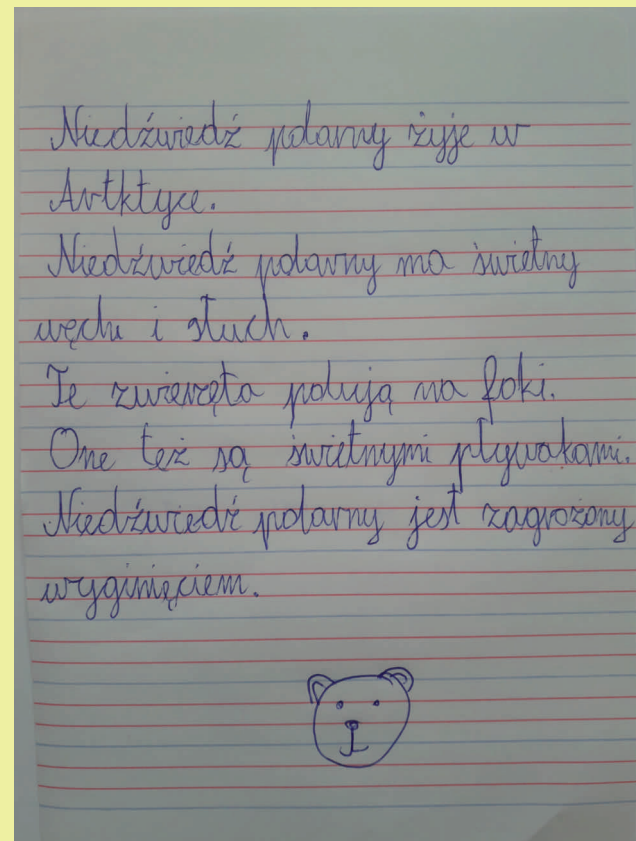 Niedźwiedź polarny żyje w
Artktyce.
Niedźwiedź polarny ma świetny
węch i słuch.
Te zwierzęta polują na foki.
One też są świetnymi pływakami.
Niedźwiedź polarny jest zagrożony
wyginięciem.